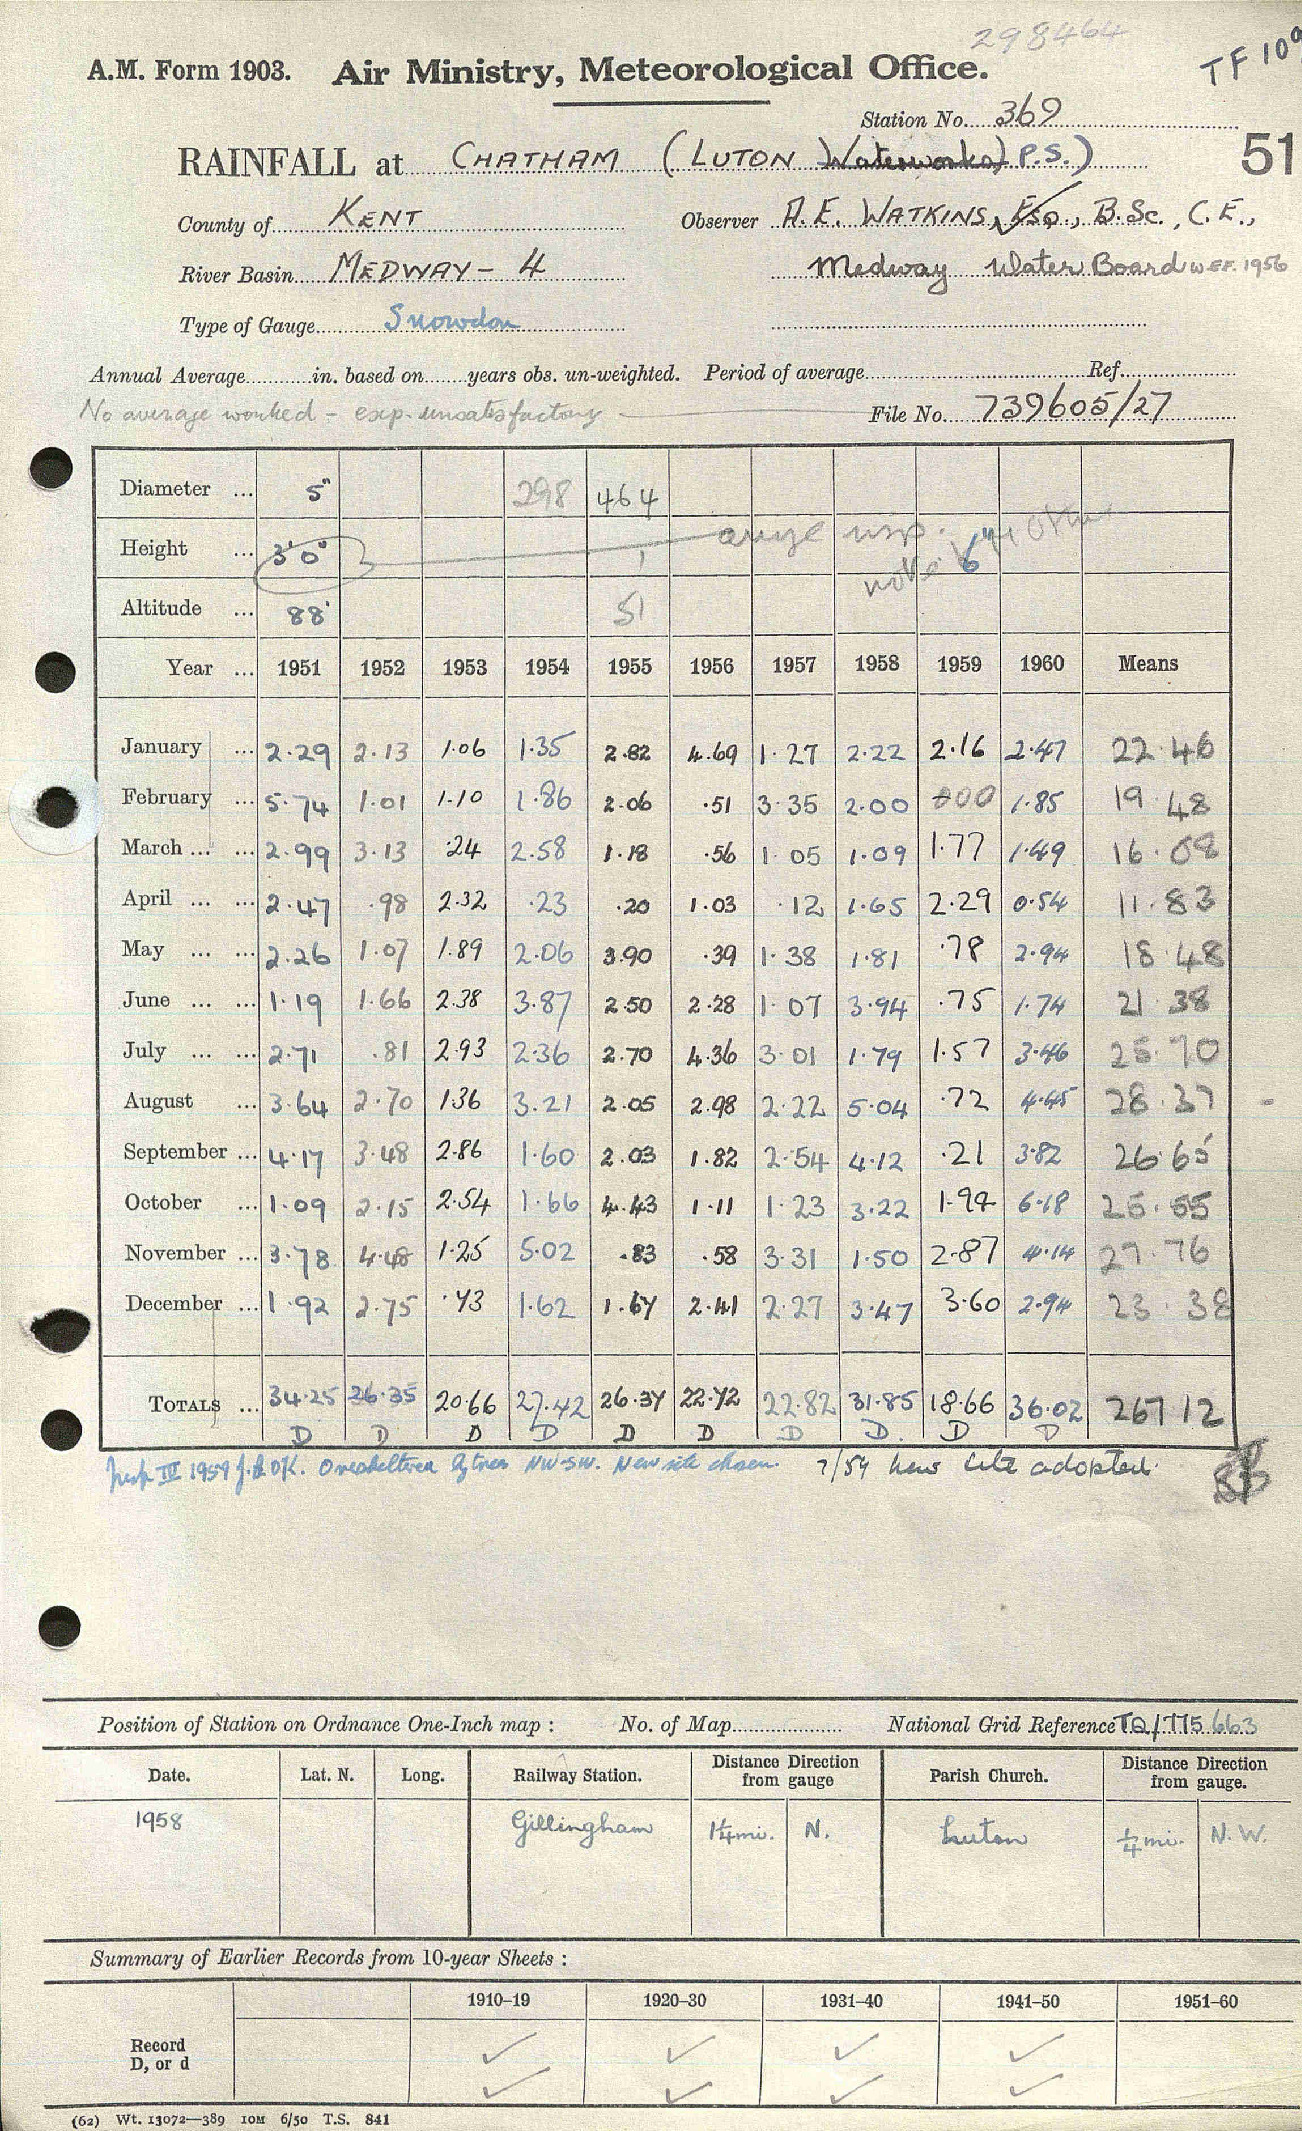 298464
A.M. Form 1903. Air Ministry, Meteorological Office. TF 109
Station No. 369
RAINFALL at CHATHAM (LUTON Waterworks) P.S.) 51
County of KENT Observer A. E. WATKINS, Esq., B.Sc., C.E.,
River Basin MEDWAY - 4 Medway Water Board W.E.F. 1956
Type of Gauge Snowdon
Annual Average in. based on years obs. un-weighted. Period of average Ref.
No average worked - exp. unsatisfactory File No. 739605/27
Diameter ... 5" 298 464
Height ... 3'0"
Altitude ... 88' 51
Year ... 1951 1952 1953 1954 1955 1956 1957 1958 1959 1960 Means
January ... 2.29 2.13 1.06 1.35 2.82 4.69 1.27 2.22 2.16 2.47 22.46
February ... 5.74 1.01 1.10 1.86 2.06 .51 3.35 2.00 000 1.85 19.48
March ... ... 2.99 3.13 .24 2.58 1.18 .56 1.05 1.09 1.77 1.49 16.08
April ... ... 2.47 .98 2.32 .23 .20 1.03 .12 1.65 2.29 0.54 11.83
May ... ... 2.26 1.07 1.89 2.06 3.90 .39 1.38 1.81 .78 2.94 18.48
June ... ... 1.19 1.66 2.38 3.87 2.50 2.28 1.07 3.94 .75 1.74 21.38
July ... ... 2.71 .81 2.93 2.36 2.70 4.36 3.01 1.79 1.57 3.46 25.70
August ... 3.64 2.70 1.36 3.21 2.05 2.98 2.22 5.04 .72 4.45 28.37
September ... 4.17 3.48 2.86 1.60 2.03 1.82 2.54 4.12 .21 3.82 26.65
October ... 1.09 2.15 2.54 1.66 4.43 1.11 1.23 3.22 1.94 6.18 25.55
November ... 3.78 4.48 1.25 5.02 .83 .58 3.31 1.50 2.87 4.14 27.76
December ... 1.92 2.75 .73 1.62 1.67 2.41 2.27 3.47 3.60 2.94 23.38
TOTALS ... 34.25 26.35 20.66 27.42 26.37 22.72 22.82 31.85 18.66 36.02 267.12
D D D D D D D D. D D
Insp III 1959 OK. Oversheltered by trees NW-SW. New site chosen. 7/59 new site adopted.
Position of Station on Ordnance One-Inch map : No. of Map National Grid Reference TQ/775 663
Date. Lat. N. Long. Railway Station. Distance Direction from gauge Parish Church. Distance Direction from gauge.
1958 Gillingham 1¼ mi. N. Luton ¼ mi. N.W.
Summary of Earlier Records from 10-year Sheets :
1910–19 1920–30 1931–40 1941–50 1951–60
Record
D, or d
(62) Wt. 13072—389 10M 6/50 T.S. 841